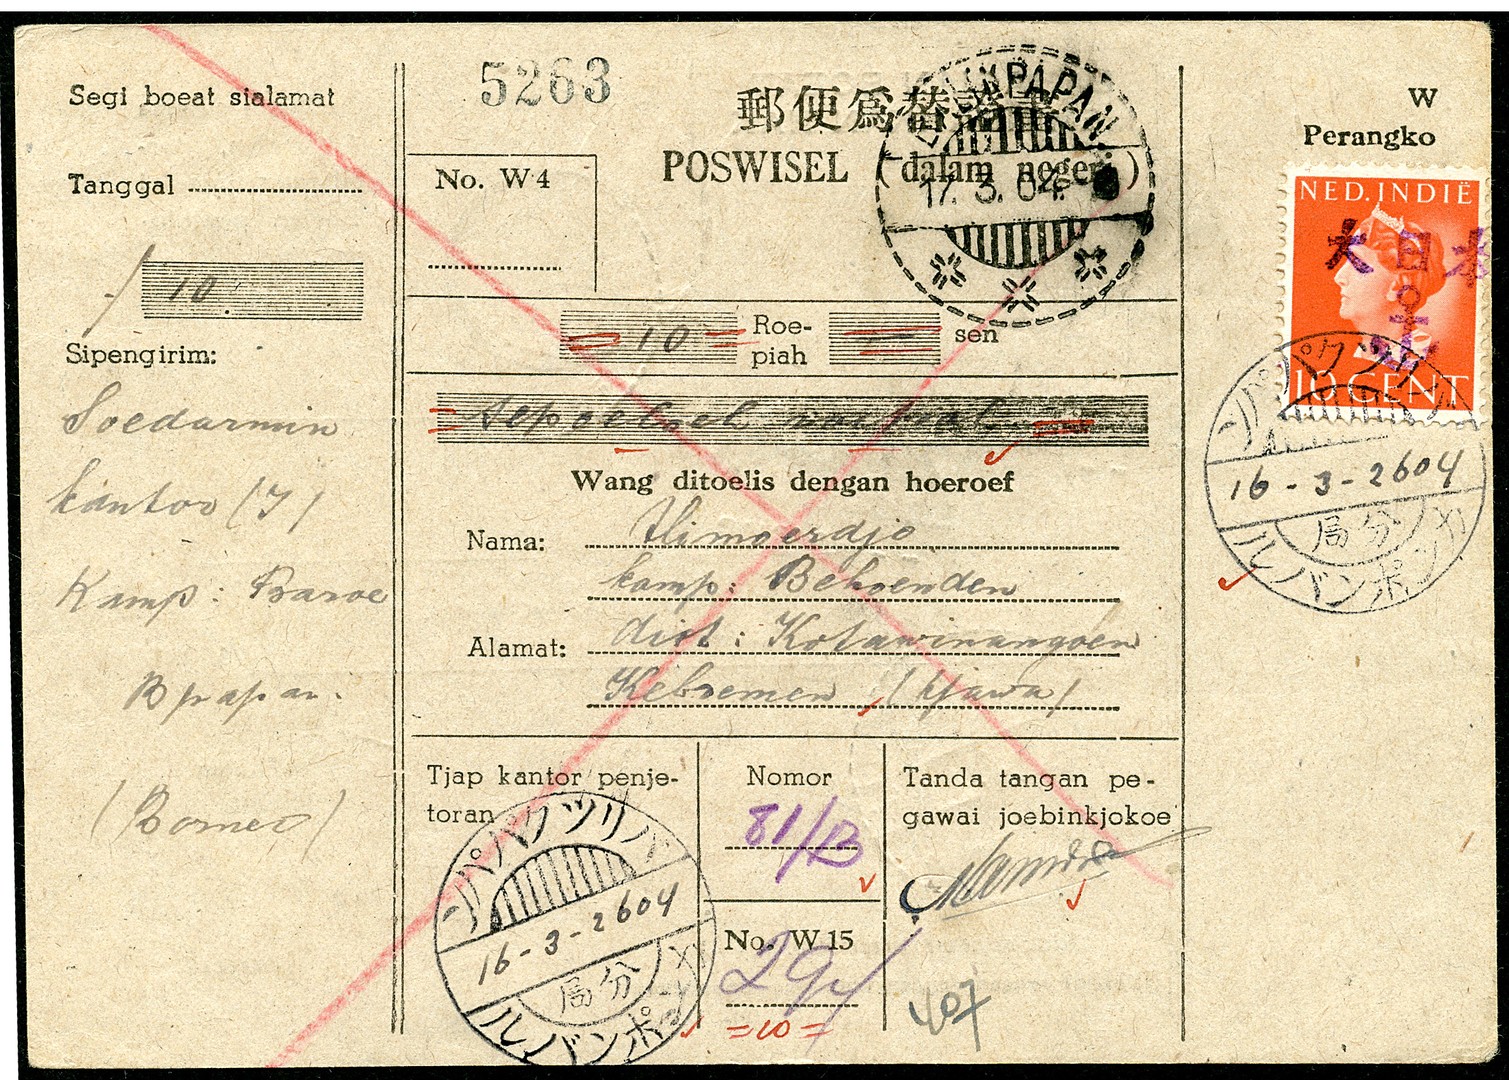 Segi boeat sialamat
Tanggal
10
Sipengirim:
Soedarmin
kantor (I)
Kamp: Baroe
Bpapan.
(Borneo)
5263
No. W4
郵便爲替
POSWISEL (dalam negeri)
BALIKPAPAN
17. 3. 04.
= 10 = Roe-
piah
sen
Wang ditoelis dengan hoeroef
Nama:
kamp:
Alamat: dist: Kotawinangoen
Keboemen (Djawa)
Tjap kantor penje-
toran
バリツクパパン
16-3-2604
分局
Nomor
81/B
No. W 15
=10=
Tanda tangan pe-
gawai joebinkjokoe
407
W
Perangko
NED. INDIË
大日本
10 CENT
16-3-2604
分局